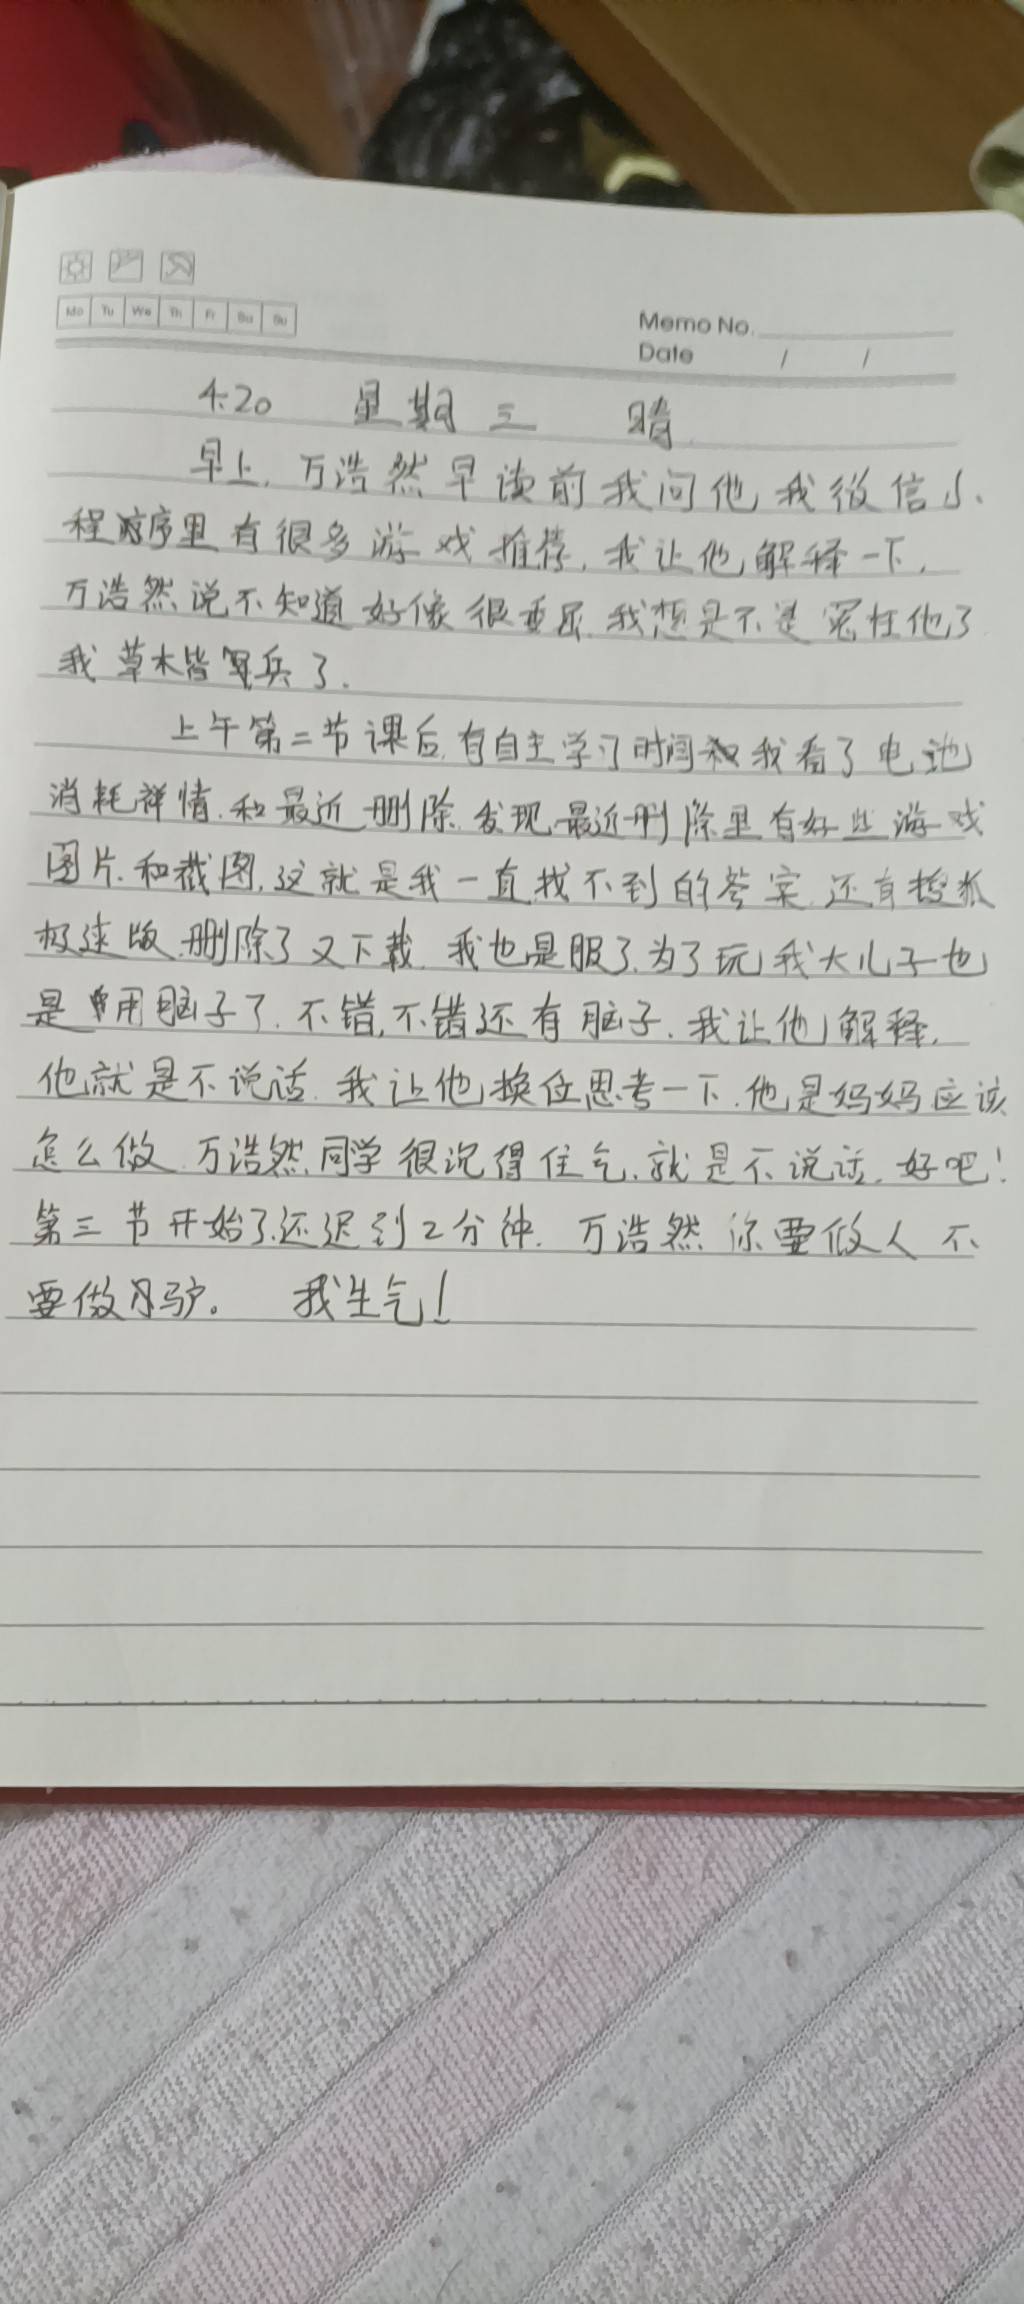 Mo Tu We Th Fr Sa Su
Memo No.
Date / /
4.20 星期三 晴
早上,万浩然早读前我问他,我微信小
程序里有很多游戏推荐,我让他解释一下,
万浩然说不知道好像很委屈.我想是不是冤枉他了
我草木皆兵了.
上午第二节课后,有自主学习时间我看了电池
消耗祥情.和最近删除.发现最近删除里有好些游戏
图片.和截图,这就是我一直找不到的答案.还有搜狐
极速版.删除了又下载.我也是服了.为了玩我大儿子也
是用脑子了.不错,不错还有脑子.我让他解释,
他就是不说话.我让他换位思考一下.他是妈妈应该
怎么做.万浩然同学很沉得住气.就是不说话.好吧!
第三节开始了.还迟到2分钟.万浩然你要做人不
要做驴。 我生气!